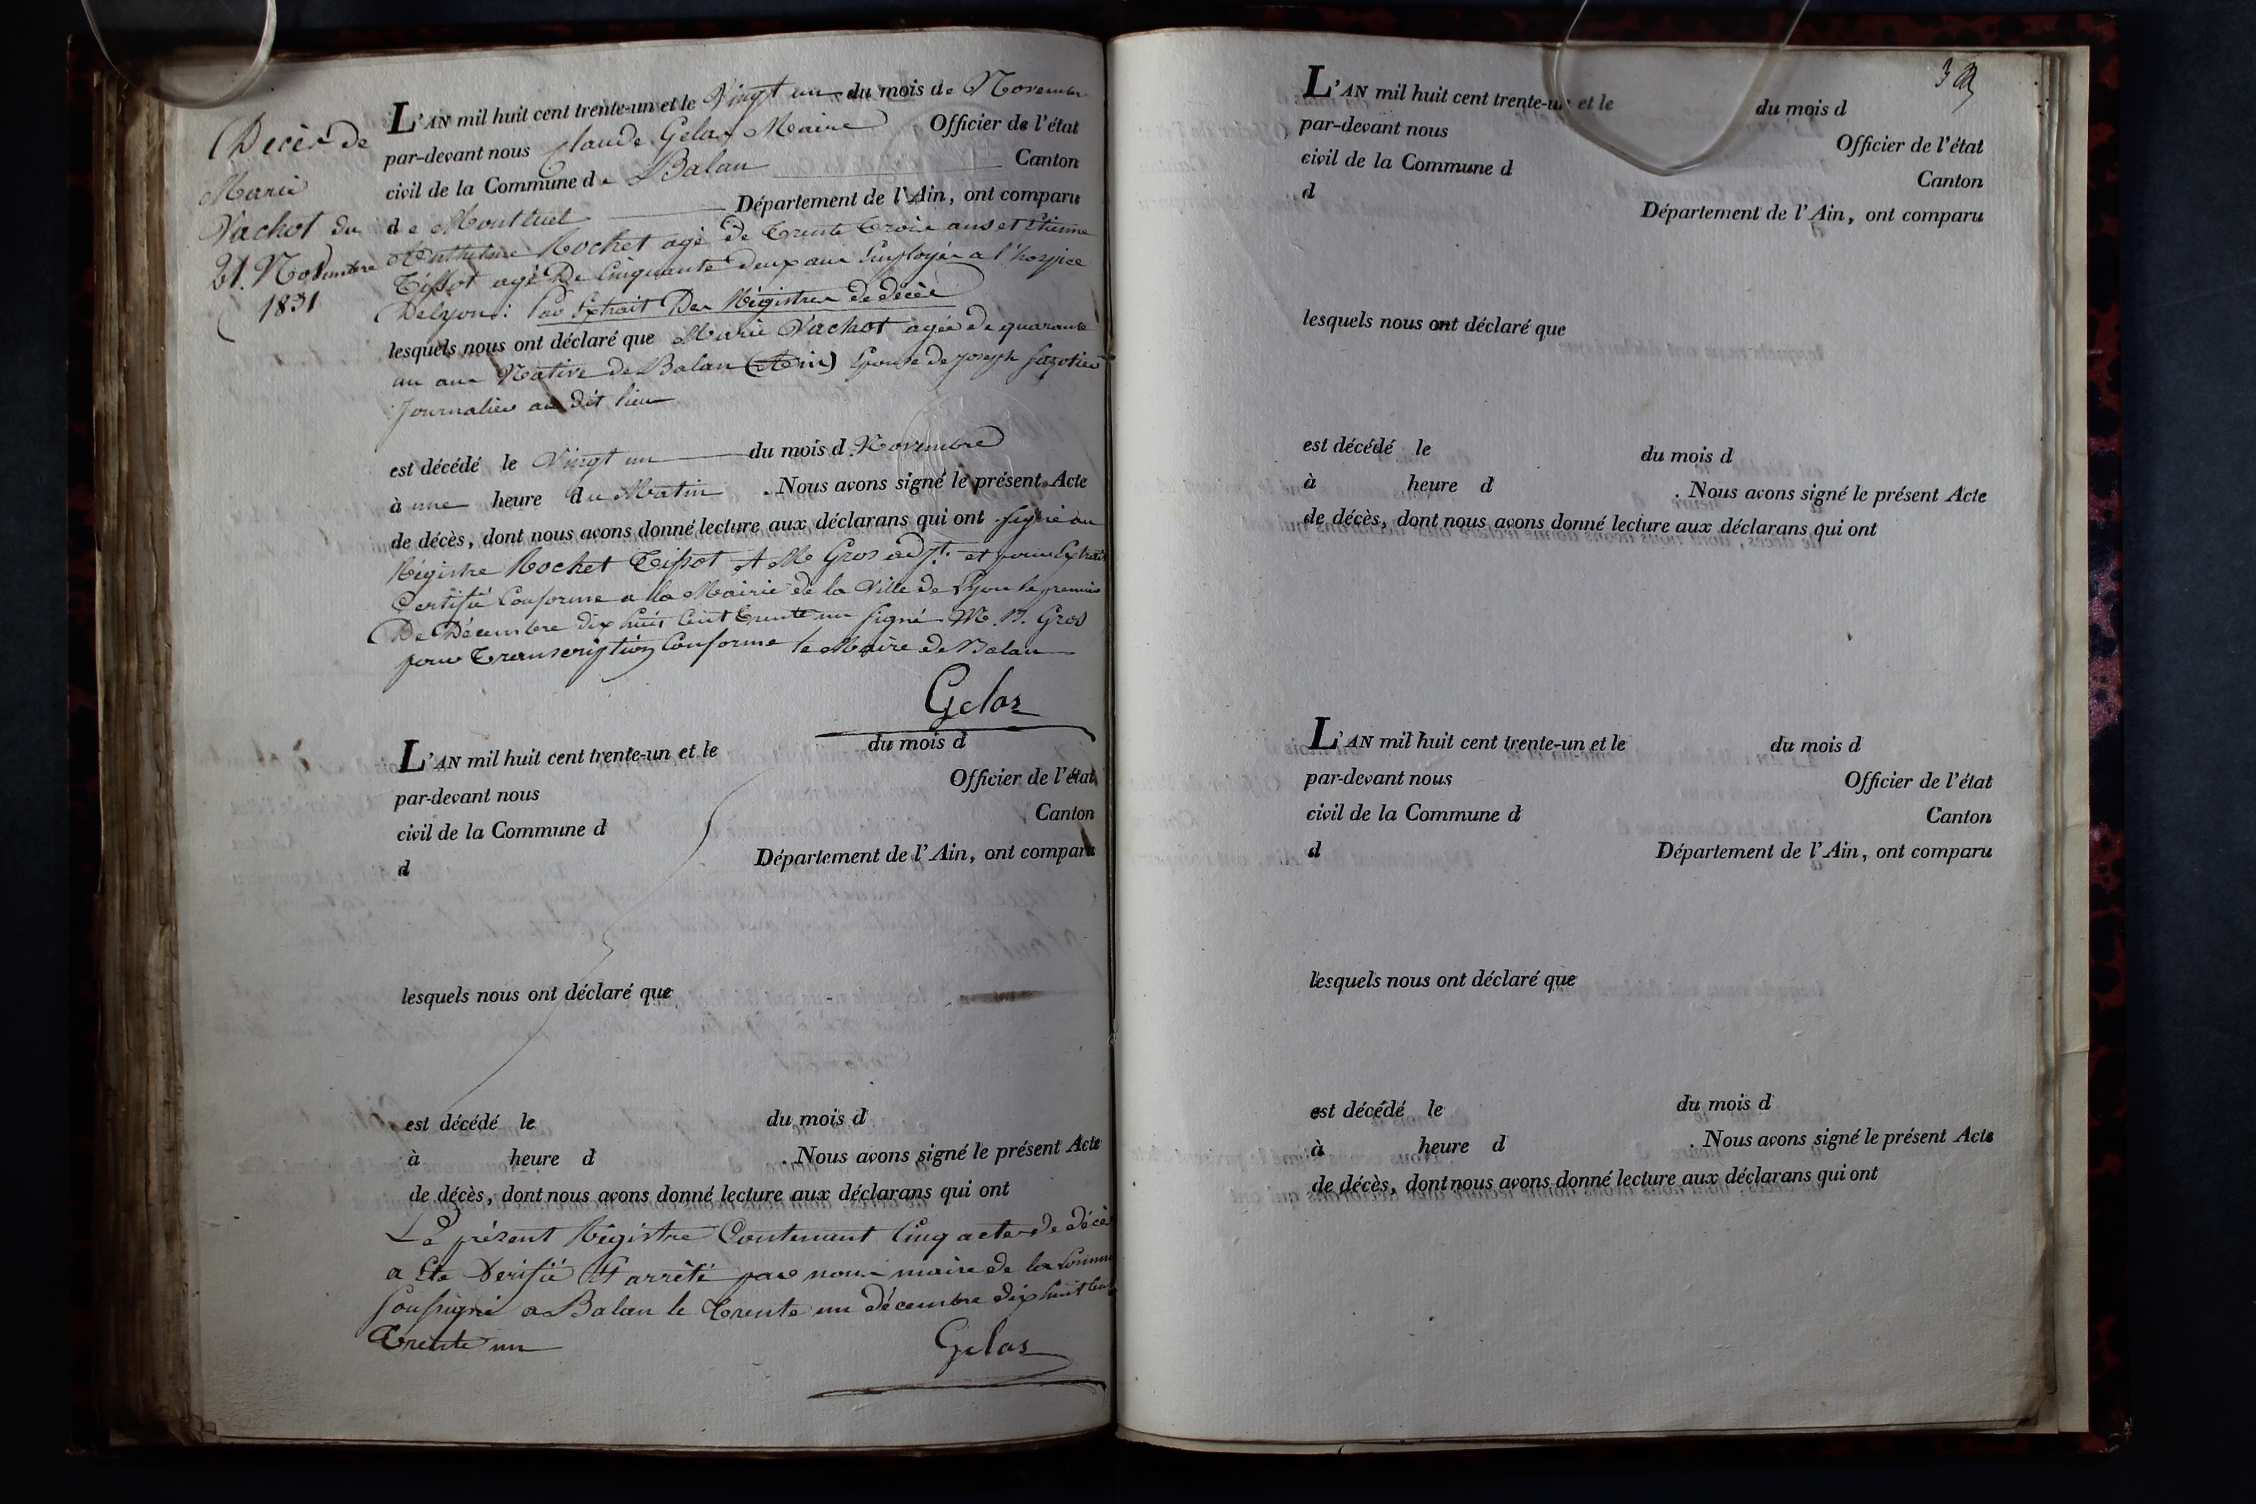 Décès de
Marie
Vachot du
21. Novembre
1831
L'AN mil huit cent trente-un et le Vingt un du mois de Novembre
par-devant nous Claude Gelas Maire Officier de l'état
civil de la Commune de Balan Canton
de Montluel Département de l'Ain, ont comparu
Anthelme Rochet agé de trente trois ans et Etienne
Tissot agé De Cinquante deux ans Employés a l'hospice
De lyon: Par Extrait Des Régistres de décès
lesquels nous ont déclaré que Marie Vachot agée de quarante
un ans Native de Balan (Ain) Epouse de joseph
Journalier au dit lieu
est décédé le Vingt un du mois d Novembre
à une heure du Matin . Nous avons signé le présent Acte
de décès, dont nous avons donné lecture aux déclarans qui ont signé au
Régistre Rochet Tissot et Me Gros adjt. et pour Extrait
Certifié Conforme a la Mairie de la Ville de Lyon le premier
De Décembre dix huit Cent trente un signé M. Gros
pour Transcription Conforme le Maire de Balan
Gelas
L'AN mil huit cent trente-un et le du mois d
par-devant nous Officier de l'état
civil de la Commune d Canton
d Département de l'Ain, ont comparu
lesquels nous ont déclaré que
est décédé le du mois d
à heure d . Nous avons signé le présent Acte
de décès, dont nous avons donné lecture aux déclarans qui ont
Le présent Régistre Contenant Cinq actes de décès
a Eté Verifié Et arrêté par nous maire de la Commune
soussigné a Balan le trente un décembre dix huit Cent
Trente un
Gelas
L'AN mil huit cent trente-un et le du mois d
par-devant nous Officier de l'état
civil de la Commune d Canton
d Département de l'Ain, ont comparu
lesquels nous ont déclaré que
est décédé le du mois d
à heure d . Nous avons signé le présent Acte
de décès, dont nous avons donné lecture aux déclarans qui ont
L'AN mil huit cent trente-un et le du mois d
par-devant nous Officier de l'état
civil de la Commune d Canton
d Département de l'Ain, ont comparu
lesquels nous ont déclaré que
est décédé le du mois d
à heure d . Nous avons signé le présent Acte
de décès, dont nous avons donné lecture aux déclarans qui ont